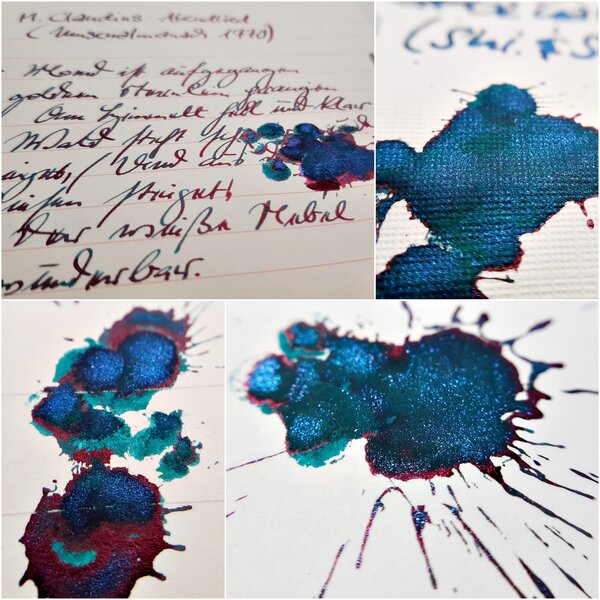 M. Claudius: Abendlied
(Musenalmanach 1770)
Mond ist aufgegangen
goldnen Sternlein prangen
Am Himmel hell und klar
Wald steht und
/ Und aus
steiget
Der weiße Nebel
wunderbar.